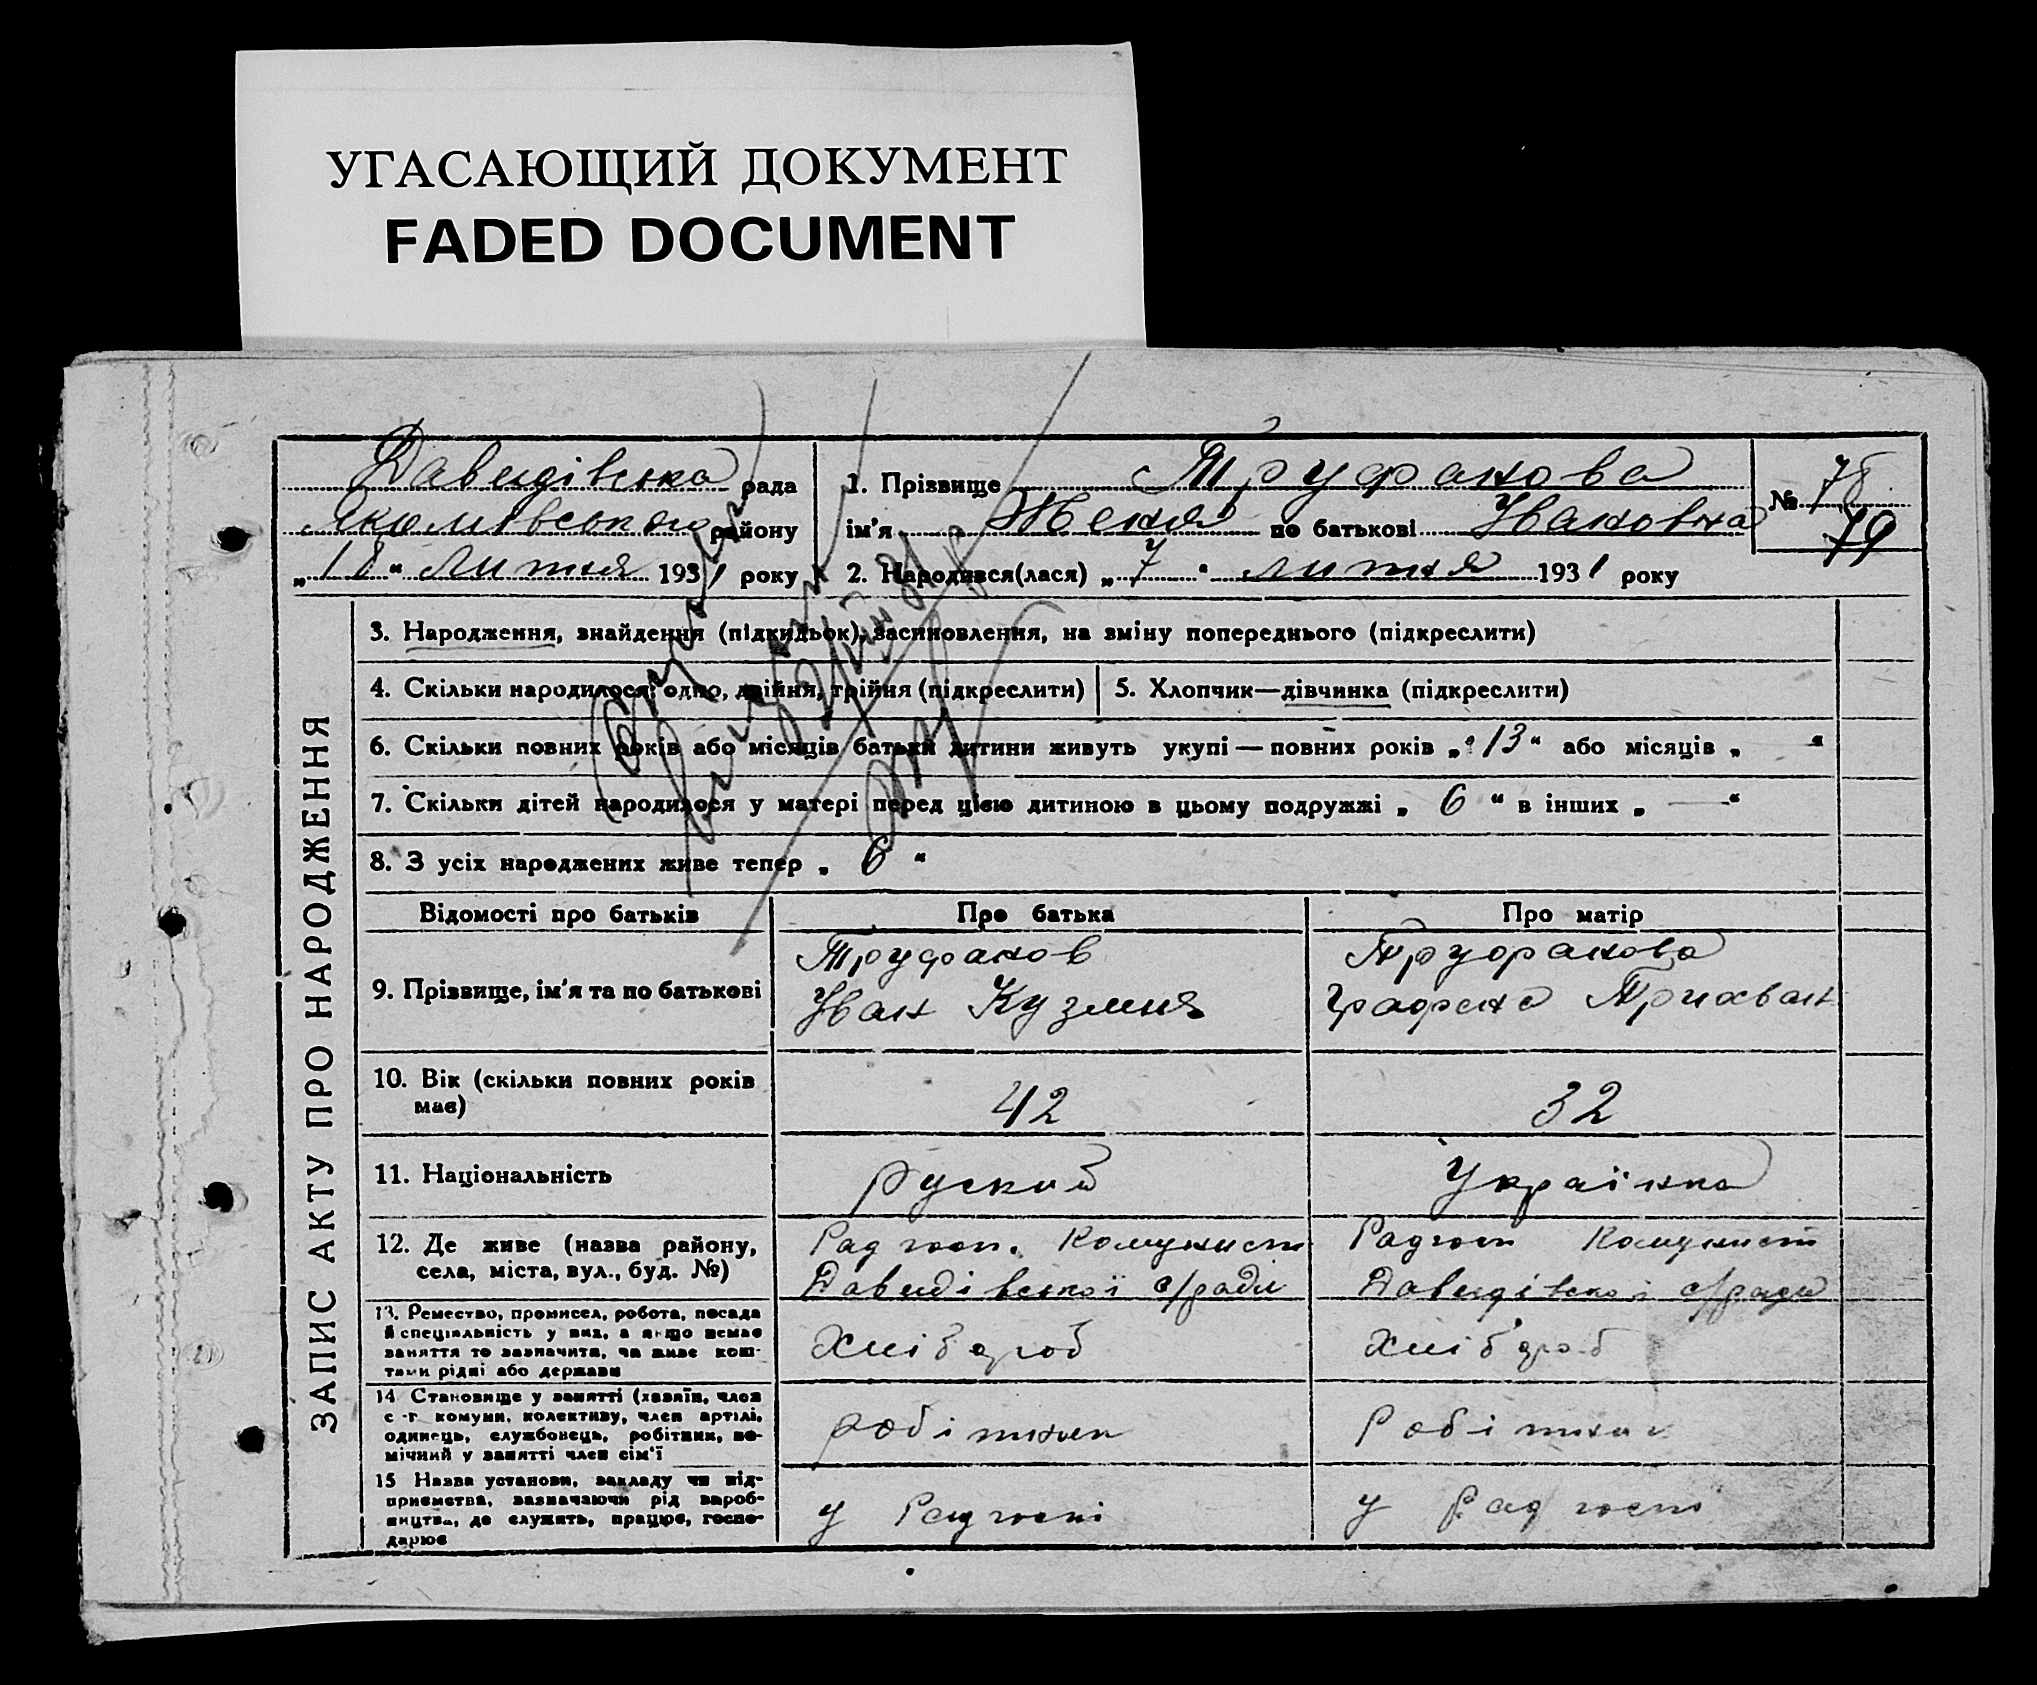 УГАСАЮЩИЙ ДОКУМЕНТ
FADED DOCUMENT
Давидівська рада
Якимівського району
„18“ лютня 1931 року
1. Прізвище Труфанова
ім'я Женя по батькові Івановна
№ 78
79
2. Народився(лася) „7“ лютня 1931 року
ЗАПИС АКТУ ПРО НАРОДЖЕННЯ
3. Народження, знайдення (підкидьок), засиновлення, на зміну попереднього (підкреслити)
4. Скільки народилося: одно, двійня, трійня (підкреслити)
5. Хлопчик—дівчинка (підкреслити)
6. Скільки повних років або місяців батьки дитини живуть укупі — повних років „13“ або місяців „ “
7. Скільки дітей народилося у матері перед цією дитиною в цьому подружжі „6“ в інших „—“
8. З усіх народжених живе тепер „6“
Відомості про батьків Про батька Про матір
9. Прізвище, ім'я та по батькові
Труфанов
Іван Кузмич
Труфанова
10. Вік (скільки повних років
має)
42
32
11. Національність
руский
Українка
12. Де живе (назва району,
села, міста, вул., буд. №)
Радгосп. Комунист
Давидівської с/ради
Радгосп Комунист
Давидівської с/ради
13. Ремество, промисел, робота, посада
й спеціяльність у них, а якщо немає
заняття то зазначити, чи живе кош-
тами рідні або держави
Хлібороб
Хлібороб
14 Становище у занятті (хазяїн, член
с.-г. комуни, колективу, член артілі,
одинець, службовець, робітник, по-
мічний у занятті член сім'ї
робітник
Робітник
15 Назва установи, закладу чи під-
приємства, зазначаючи рід вироб-
ництва, де служить, працює, госпо-
дарює
у Радгоспі
у Радгоспі